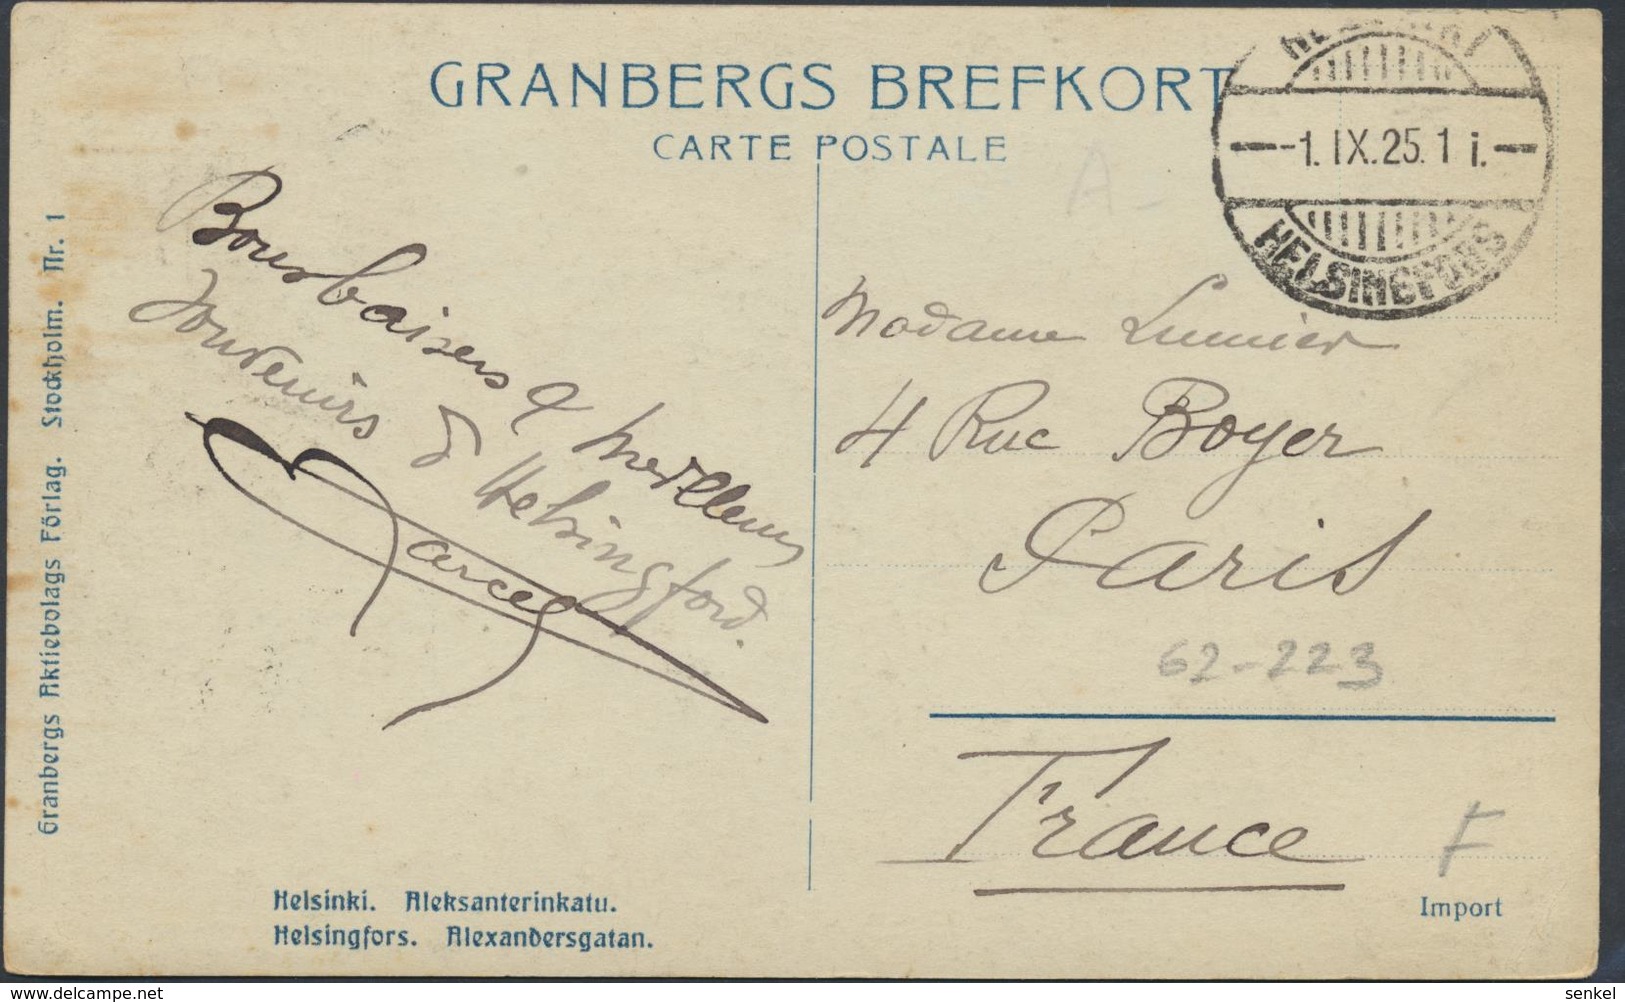 GRANBERGS BREFKORT
CARTE POSTALE
-1. IX. 25. 1 i.
HELSINGFORS
A-
Bons baisers & meilleurs
souvenirs d Helsingford.
Marcel
Madame Lumier
4 Rue Boyer
Paris
62-223
France
F
Import
Granbergs Aktiebolags Förlag. Stockholm. Nr. 1
Helsinki. Aleksanterinkatu.
Helsingfors. Alexandersgatan.
delcampe.net
senkel